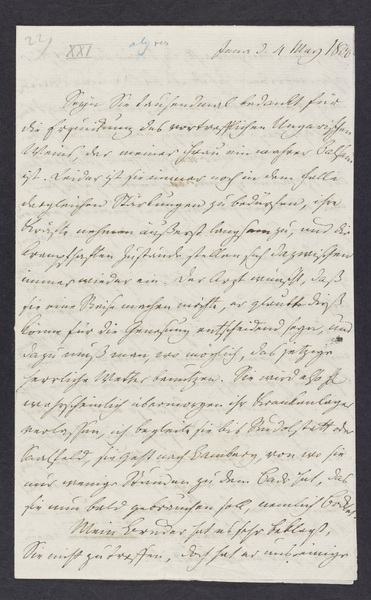 22)
XXI
Jena d. 4 May 1800
Seyn Sie tausendmal bedankt für
die Ergründung des vortrefflichen Ungarischen
Weins, der meiner Frau ein wahrer Balsam
ist. Leider ist sie immer noch in dem Falle
dergleichen Stärkungen zu bedürfen, ihre
Kräfte nehmen äußerst langsam zu, und die
krampfhaften Zustände stellen sich dazwischen
immer wieder ein. Der Arzt wünscht, daß
sie eine Reise machen möchte, er glaubt dieß
könne für die Genesung entscheidend seyn, und
dazu muß man, wo möglich, das jetzige
herrliche Wetter benutzen. Sie wird also
wahrscheinlich übermorgen ihr Krankenlager
verlassen, ich begleite sie bis Rudolstadt oder
Saalfeld, sie geht nach Bamberg, von wo sie
nur wenige Stunden zu dem Bade hat, das
sie nun bald gebrauchen soll, nemlich
Mein Bruder hat es sehr beklagt,
Sie nicht zu treffen, doch hat er uns einige